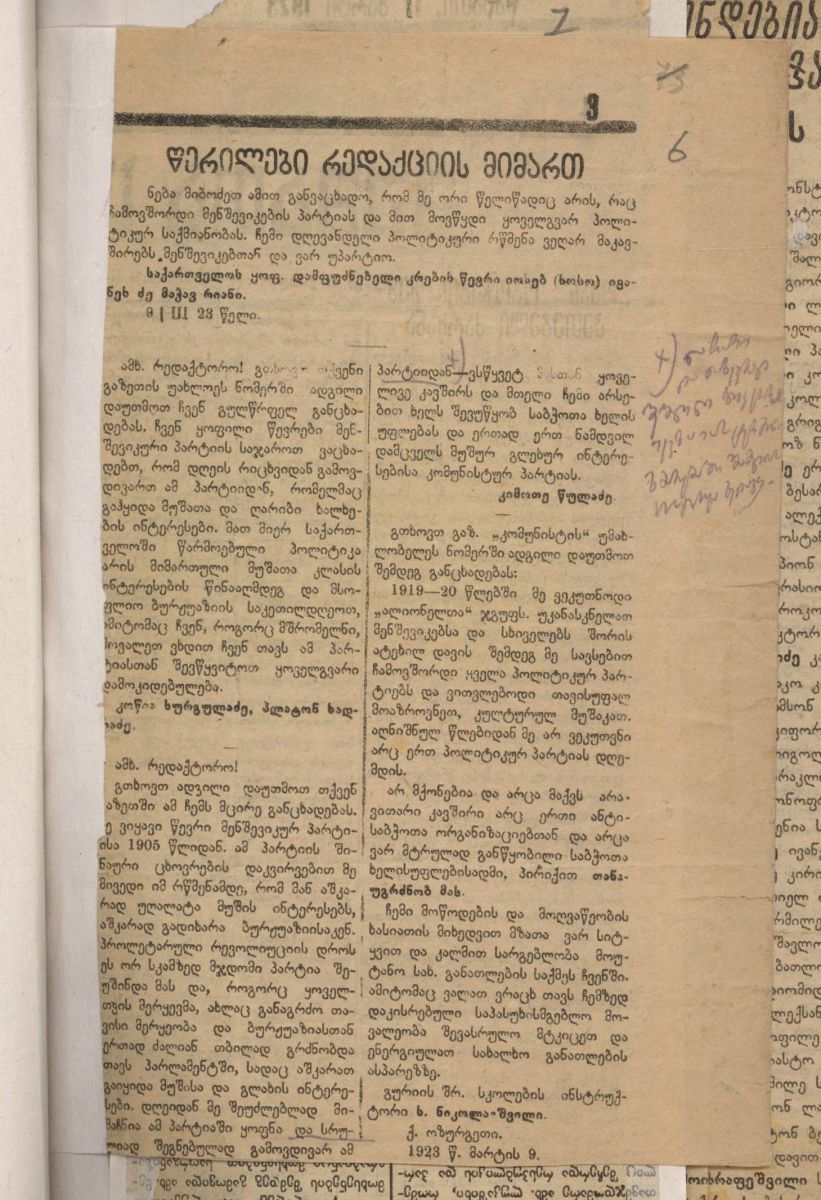 7
73
6
3
წერილები რედაქციის მიმართ
ნება მიბოძეთ ამით განვაცხადო, რომ მე ორი წელიწადიც არის, რაც
ჩამოვშორდი მენშევიკების პარტიას და მით მოვწყდი ყოველგვარ პოლი-
ტიკურ საქმიანობას. ჩემი დღევანდელი პოლიტიკური რწმენა ვეღარ მაკავ-
შირებს მენშევიკებთან და ვარ უპარტიო.
საქართველოს ყოფ. დამფუძნებელი კრების წევრი იოსებ (სოსო) ივა-
ნეს ძე მაჭავ რიანი.
9 | III 23 წელი.
ამხ. რედაქტორო! გთხოვთ თქვენი
გაზეთის უახლოეს ნომერში ადგილი
დაუთმოთ ჩვენ გულწრფელ განცხა-
დებას. ჩვენ ყოფილი წევრები მენ-
შევიკური პარტიის საჯაროთ ვაცხა-
დებთ, რომ დღეის რიცხვიდან გამოვ-
დივართ ამ პარტიიდან, რომელმაც
გაჰყიდა მუშათა და ღარიბი ხალხე-
ბის ინტერესები. მათ მიერ საქართ-
ველოში წარმოებული პოლიტიკა
არის მიმართული მუშათა კლასის
ინტერესების წინააღმდეგ და მსო-
ფლიო ბურჟუაზიის საკეთილდღეოთ,
ამიტომაც ჩვენ, როგორც მშრომელნი,
მოვალეთ ვხდით ჩვენ თავს ამ პარ-
ტიასთან შევწყვიტოთ ყოველგვარი
დამოკიდებულება.
კოწია სურგულაძე, პლატონ ხად-
რაძე.
ამხ. რედაქტორო!
გთხოვთ ადგილი დაუთმოთ თქვენ
აზეთში ამ ჩემს მცირე განცხადებას.
ე ვიყავი წევრი მენშევიკურ პარტი-
ისა 1905 წლიდან. ამ პარტიის ში-
ნაური ცხოვრების დაკვირვებით მე
მივედი იმ რწმენამდე, რომ მან აშკა-
რად უღალატა მუშის ინტერესებს,
აშკარად გადიხარა ბურჟუაზიისაკენ.
პროლეტარული რევოლიუციის დროს
ეს ორ სკამზედ მჯდომი პარტია შე-
უშინდა მას და, როგორც ყოველ-
თვის მერყევმა, ახლაც განაგრძო თა-
ვისი მერყეობა და ბურჟუაზიასთან
ერთად ძალიან თბილად გრძნობდა
თავს პარლამენტში, სადაც აშკარათ
გაიყიდა მუშისა და გლახის ინტერე-
სები. დღეიდან მე შეუძლებლად მი-
მაჩნია ამ პარტიაში ყოფნა და სრუ-
ლიად შეგნებულად გამოვდივარ ამ
პარტიიდან—ვსწყვეტ მასთან ყოვე-
ლივე კავშირს და მთელი ჩემი არსე-
ბით ხელს შევუწყობ საბჭოთა ხელის
უფლებას და ერთად ერთ ნამდვილ
დამცველს მუშურ გლეხურ ინტერე-
სებისა კომუნისტურ პარტიას.
კიმოთე წულაძე
გთხოვთ გაზ. „კომუნისტის“ უმახ-
ლობელეს ნომერში ადგილი დაუთმოთ
შემდეგ განცხადებას:
1919—20 წლებში მე ვეკუთნოდი
„ალიონელთა“ ჯგუფს. უკანასკნელათ
მენშევიკებსა და სხიველებს შორის
ატეხილ დავის შემდეგ მე სავსებით
ჩამოვშორდი ყველა პოლიტიკურ პარ-
ტიებს და ვითვლებოდი თავისუფალ
მოაზროვნეთ, კულტურულ მუშაკათ.
აღნიშნულ წლებიდან მე არ ვეკუთვნი
არც ერთ პოლიტიკურ პარტიას დღე-
მდის.
არ მქონებია და არცა მაქვს არა-
ვითარი კავშირი არც ერთი ანტი-
საბჭოთა ორგანიზაციებთან და არცა
ვარ მტრულად განწყობილი საბჭოთა
ხელისუფლებისადმი, პირიქით თანა-
უგრძნობ მას.
ჩემი მოწოდების და მოღვაწეობის
ხასიათის მიხედვით მზათა ვარ სიტ-
ყვით და კალმით სარგებლობა მოუ-
ტანო სახ. განათლების საქმეს ჩვენში.
ამიტომაც ვალათ ვრაცხ თავს ჩემზედ
დაკისრებული საპასუხისმგებლო მო-
ვალეობა შევასრულო მტკიცეთ და
ენერგიულათ სახალხო განათლების
ასპარეზზე.
გურიის შრ. სკოლების ინსტრუქ-
ტორი ს. ნიკოლაშვილი.
ქ. ოზურგეთი.
1923 წ. მარტის 9.